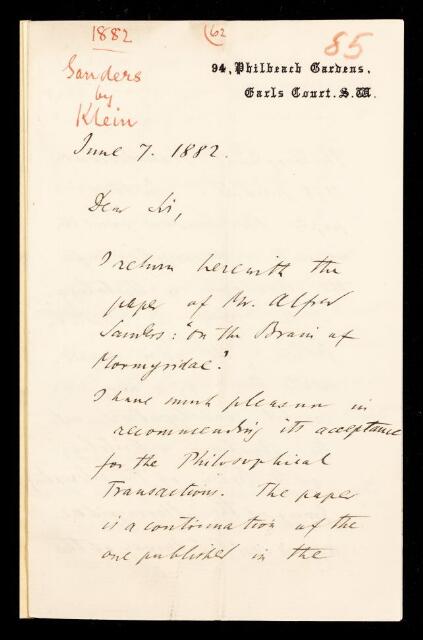 1882
62
85
Sanders
by
Klein
94, Philbeach Gardens,
Earls Court. S.W.
June 7. 1882.
Dear Sir,
I return herewith the
paper of Mr. Alfred
Sanders: "on the Brain of
Mormyridae".
I have much pleasure in
recommending its acceptance
for the Philosophical
Transactions. The paper
is a continuation of the
one published in the